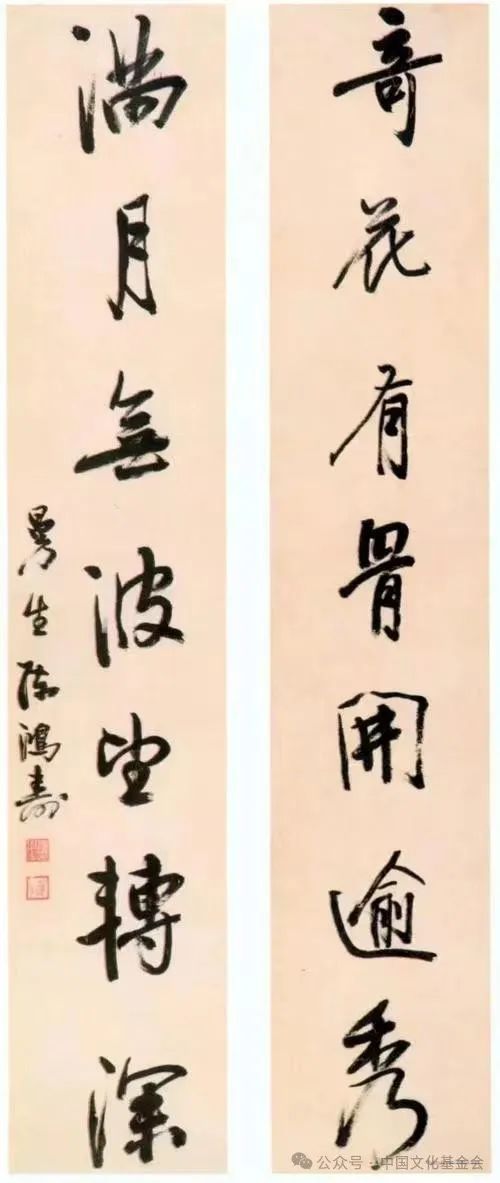 奇花有骨開逾秀
滿月無波望轉深
曼生陳鴻壽
公众号 · 中国文化基金会